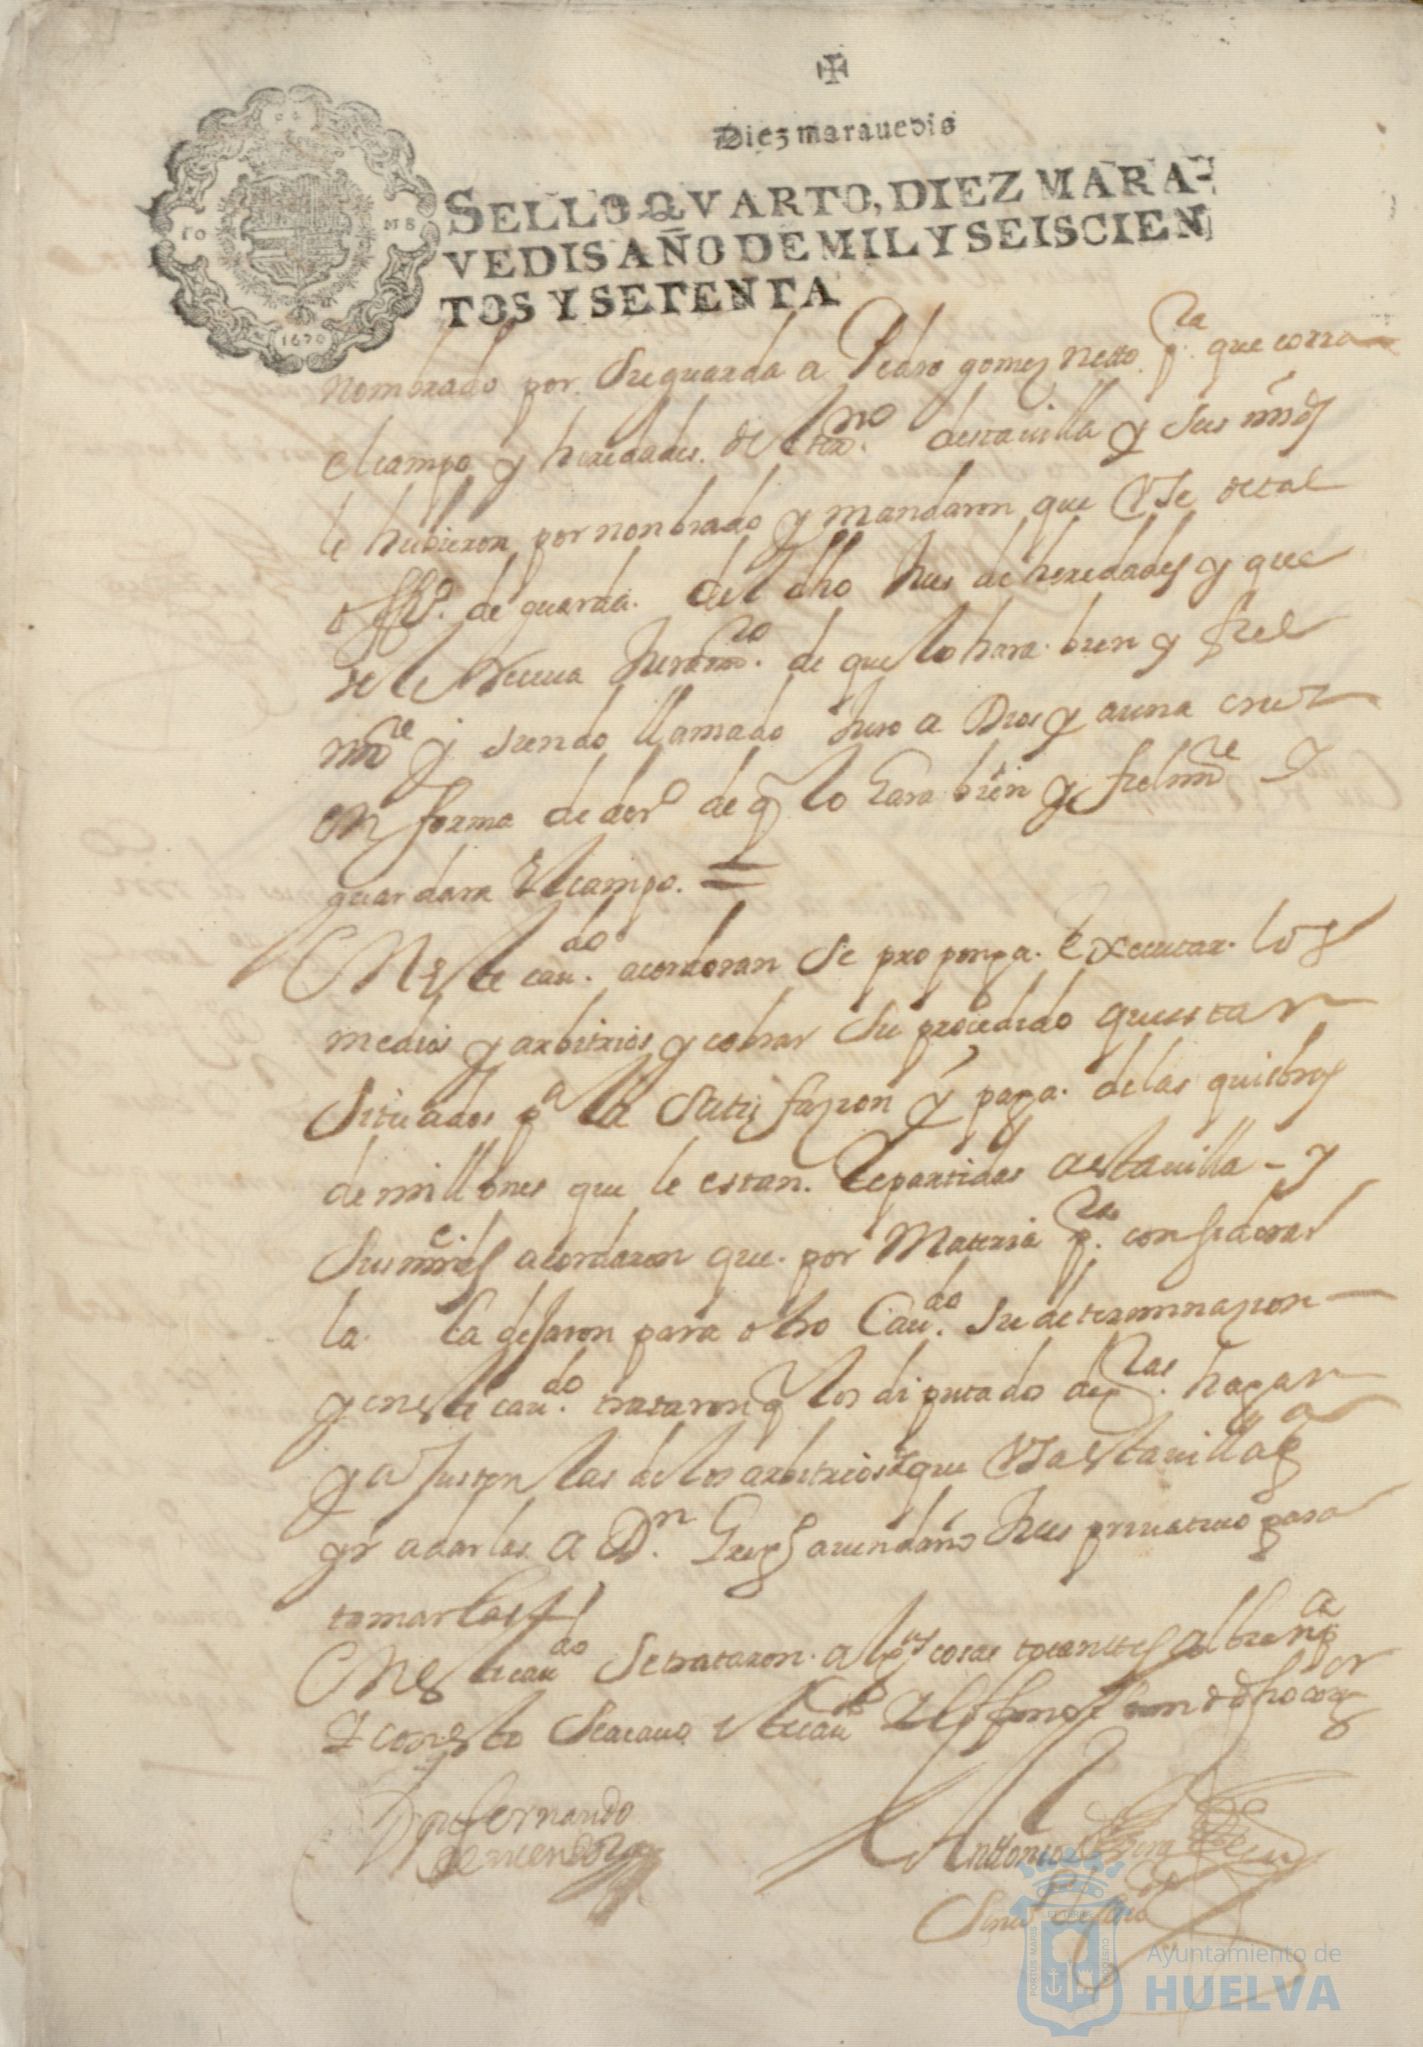 ✠
Diez marauedis
SELLO QVARTO, DIEZ MARA-
VEDIS AÑO DE MIL Y SEISCIEN
TOS Y SETENTA
1670
nombrado por su guarda a Pedro gomez netto pra que corra
el campo y heredades del termno desta villa y sus mrds
le hubieron por nonbrado y mandaron que Vse de tal
offo de guarda del dho de heredades y que
se le Reciua Juramto de que lo hara bien y fiel
mte y siendo llamado Juro a Dios y a una cruz
en forma de dero de q lo hara bien y fielmte y
guardara El campo =
En este caudo acordoran se proponga Executar los
medios y arbitrios y cobrar su procedido que estan
situados pa la satisfazion y paga de las quiebras
de millones que le estan Repartidas a esta uilla - y
sus mrcds acordaron que por Materia pra considerar
la la dejaron para otro Caudo su determinazion
y en este caudo trataron q los diputados de qtas hagan
y ajusten las de los arbitrios que Vsa esta uilla
yr a darlas a Dn Greg auendaño Jues priuatiuo para
tomarlas
En este caudo se trataron algs cosas tocantes al
y con esto se acauo este caudo y lo firmo dho cor
Don fernando
Anttonio
Ayuntamiento de
HUELVA